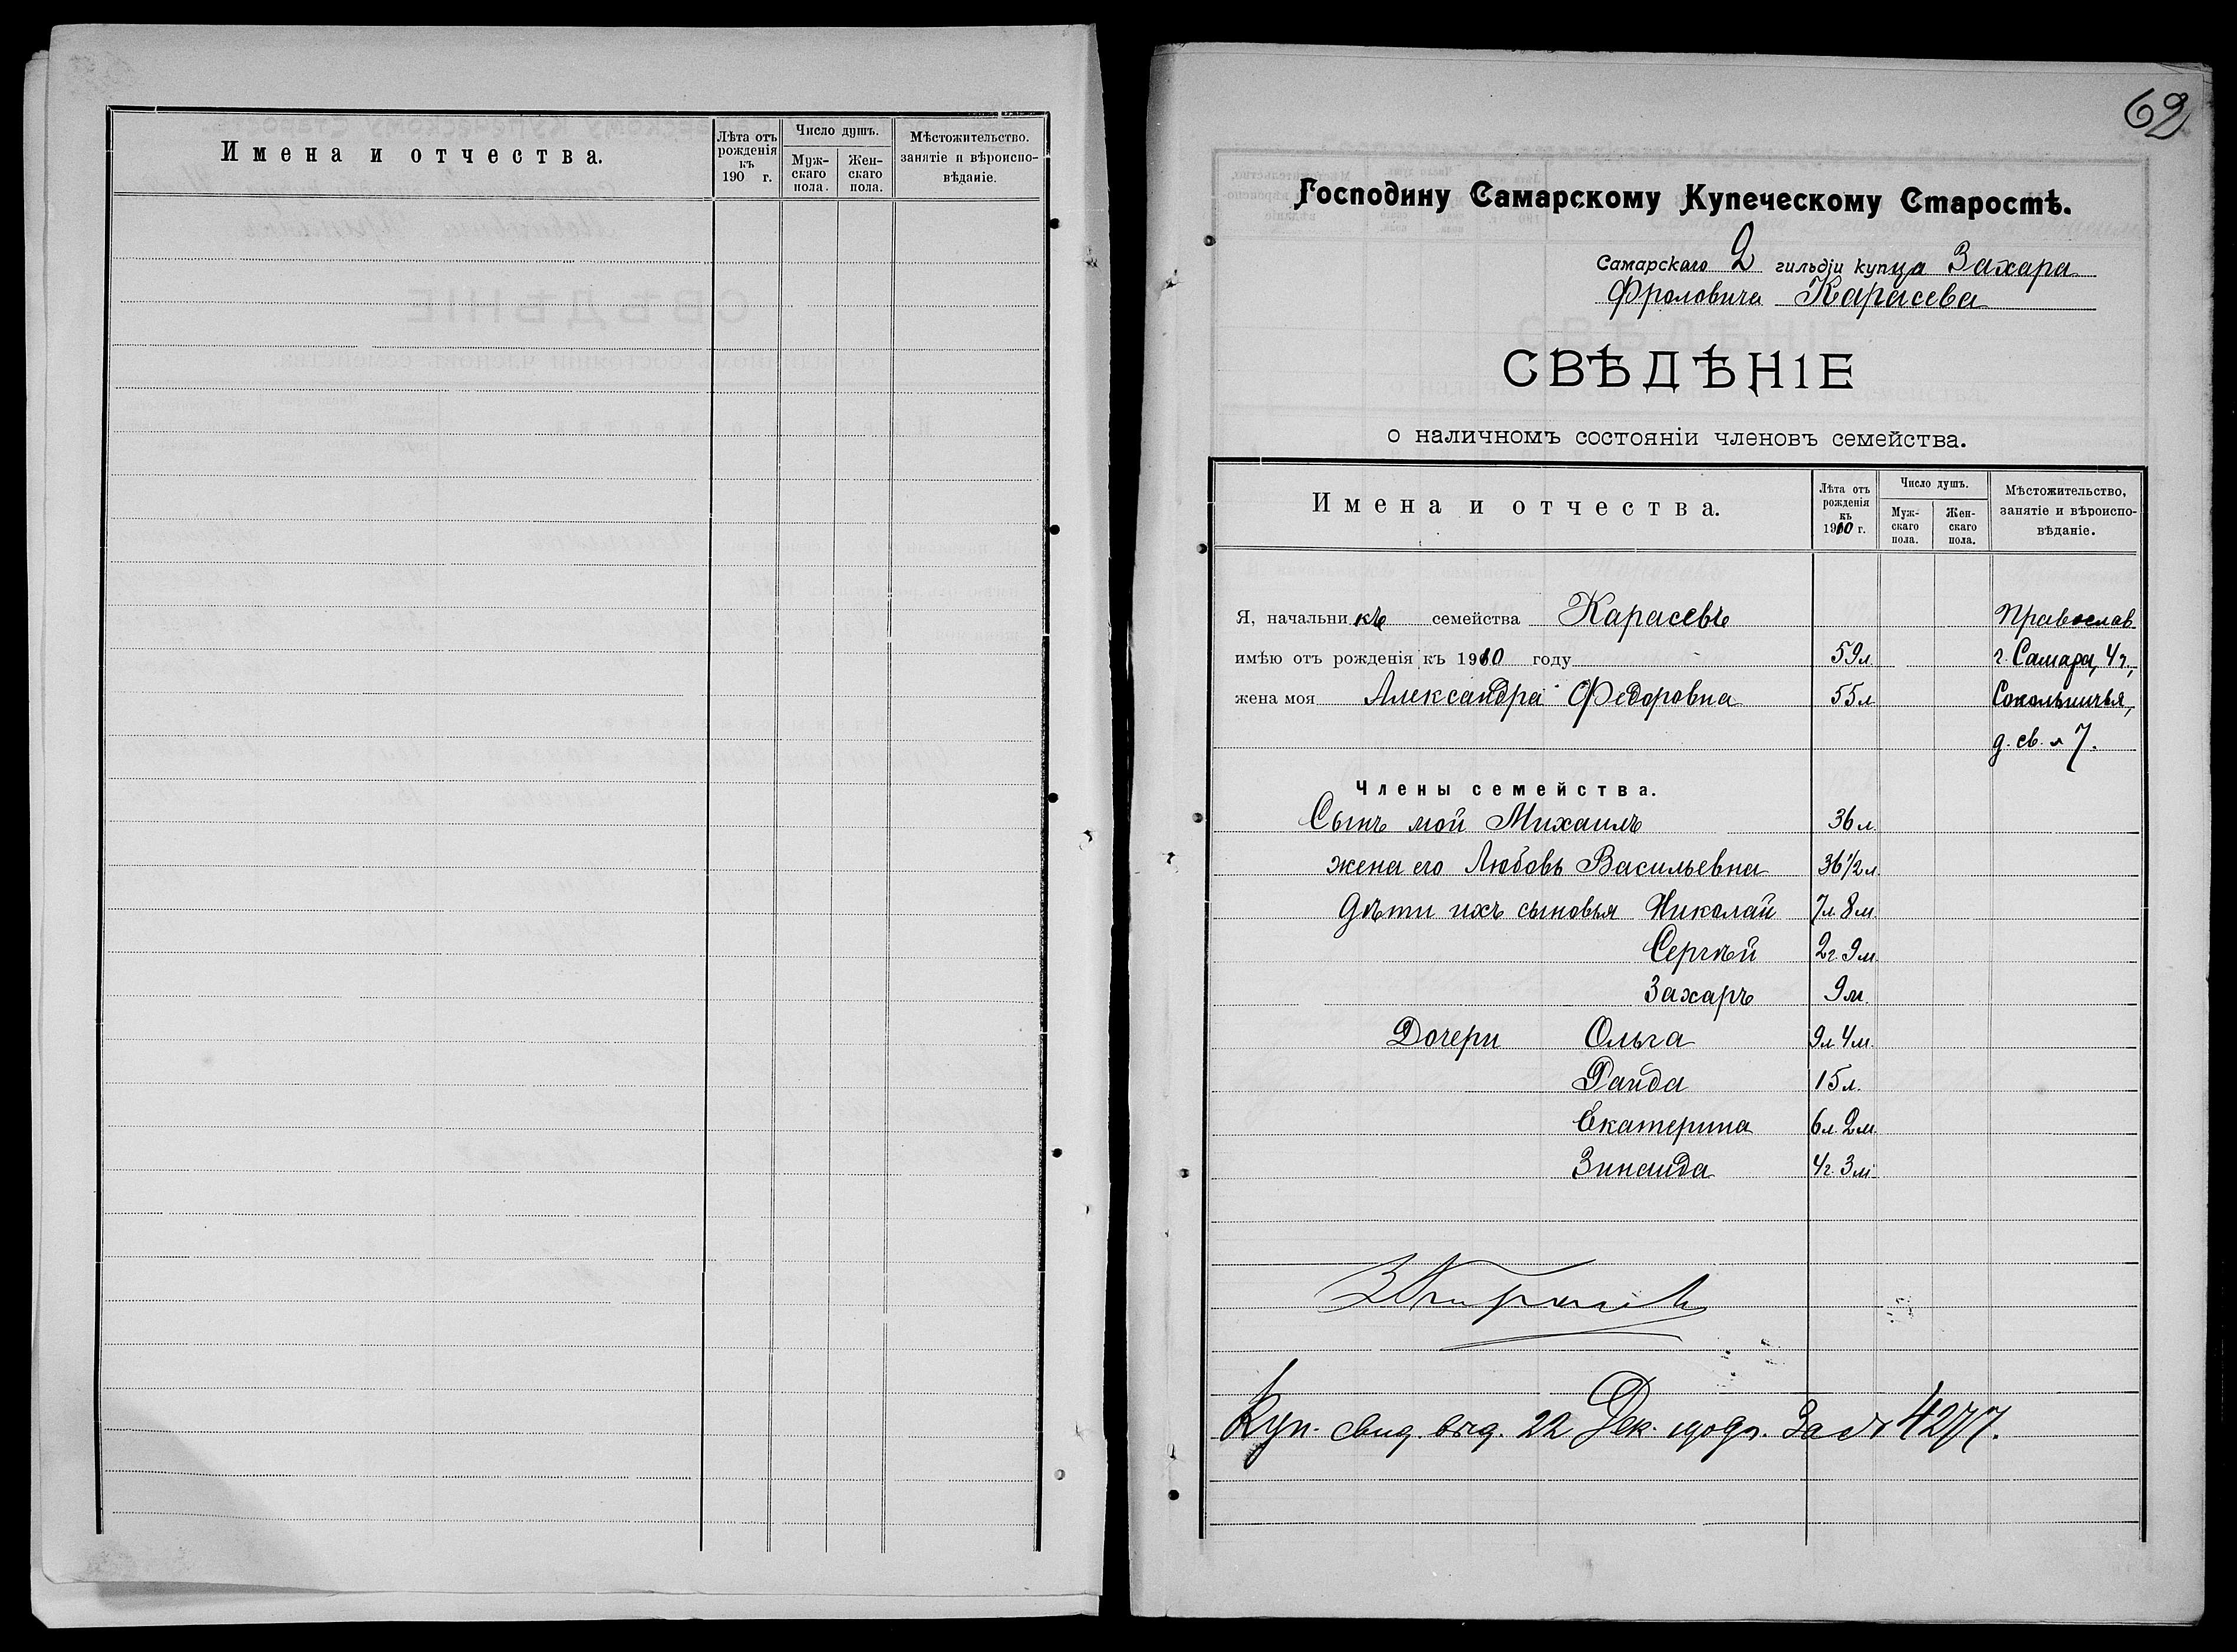 Имена и отчества.
Лѣта отъ рожденія къ 190 г.
Число душъ.
Муж-скаго пола.
Жен-скаго пола.
Мѣстожительство. занятіе и вѣроиспо-вѣданіе.
62
Господину Самарскому Купеческому Старостѣ.
Самарскаго 2 гильдіи купца Захара
Фроловича Карасева
СВѢДѢНІЕ
о наличномъ состояніи членовъ семейства.
Имена и отчества.
Лѣта отъ рожденія къ 1910 г.
Число душъ.
Муж-скаго пола.
Жен-скаго пола.
Мѣстожительство, занятіе и вѣроиспо-вѣданіе.
Я, начальникъ семейства Карасевъ Православ
имѣю отъ рожденія къ 1910 году 59 л. г. Самара, 4 ч.,
жена моя Александра Федоровна 55 л
д. св. 7.
Члены семейства.
Сынъ мой Михаилъ 36 л.
жена его Любовь Васильевна 36 1/2 л.
дѣти ихъ сыновья Николай 7 л. 8 м.
Сергѣй 2 г. 9 м.
Захаръ 9 м.
Дочери Ольга 9 л 4 м.
Раида 15 л.
Екатерина 6 л. 2 м.
Зинаида 4 г. 3 м
ЗКарасев
Куп. свид. выд. 22 Дек. за № 4277.